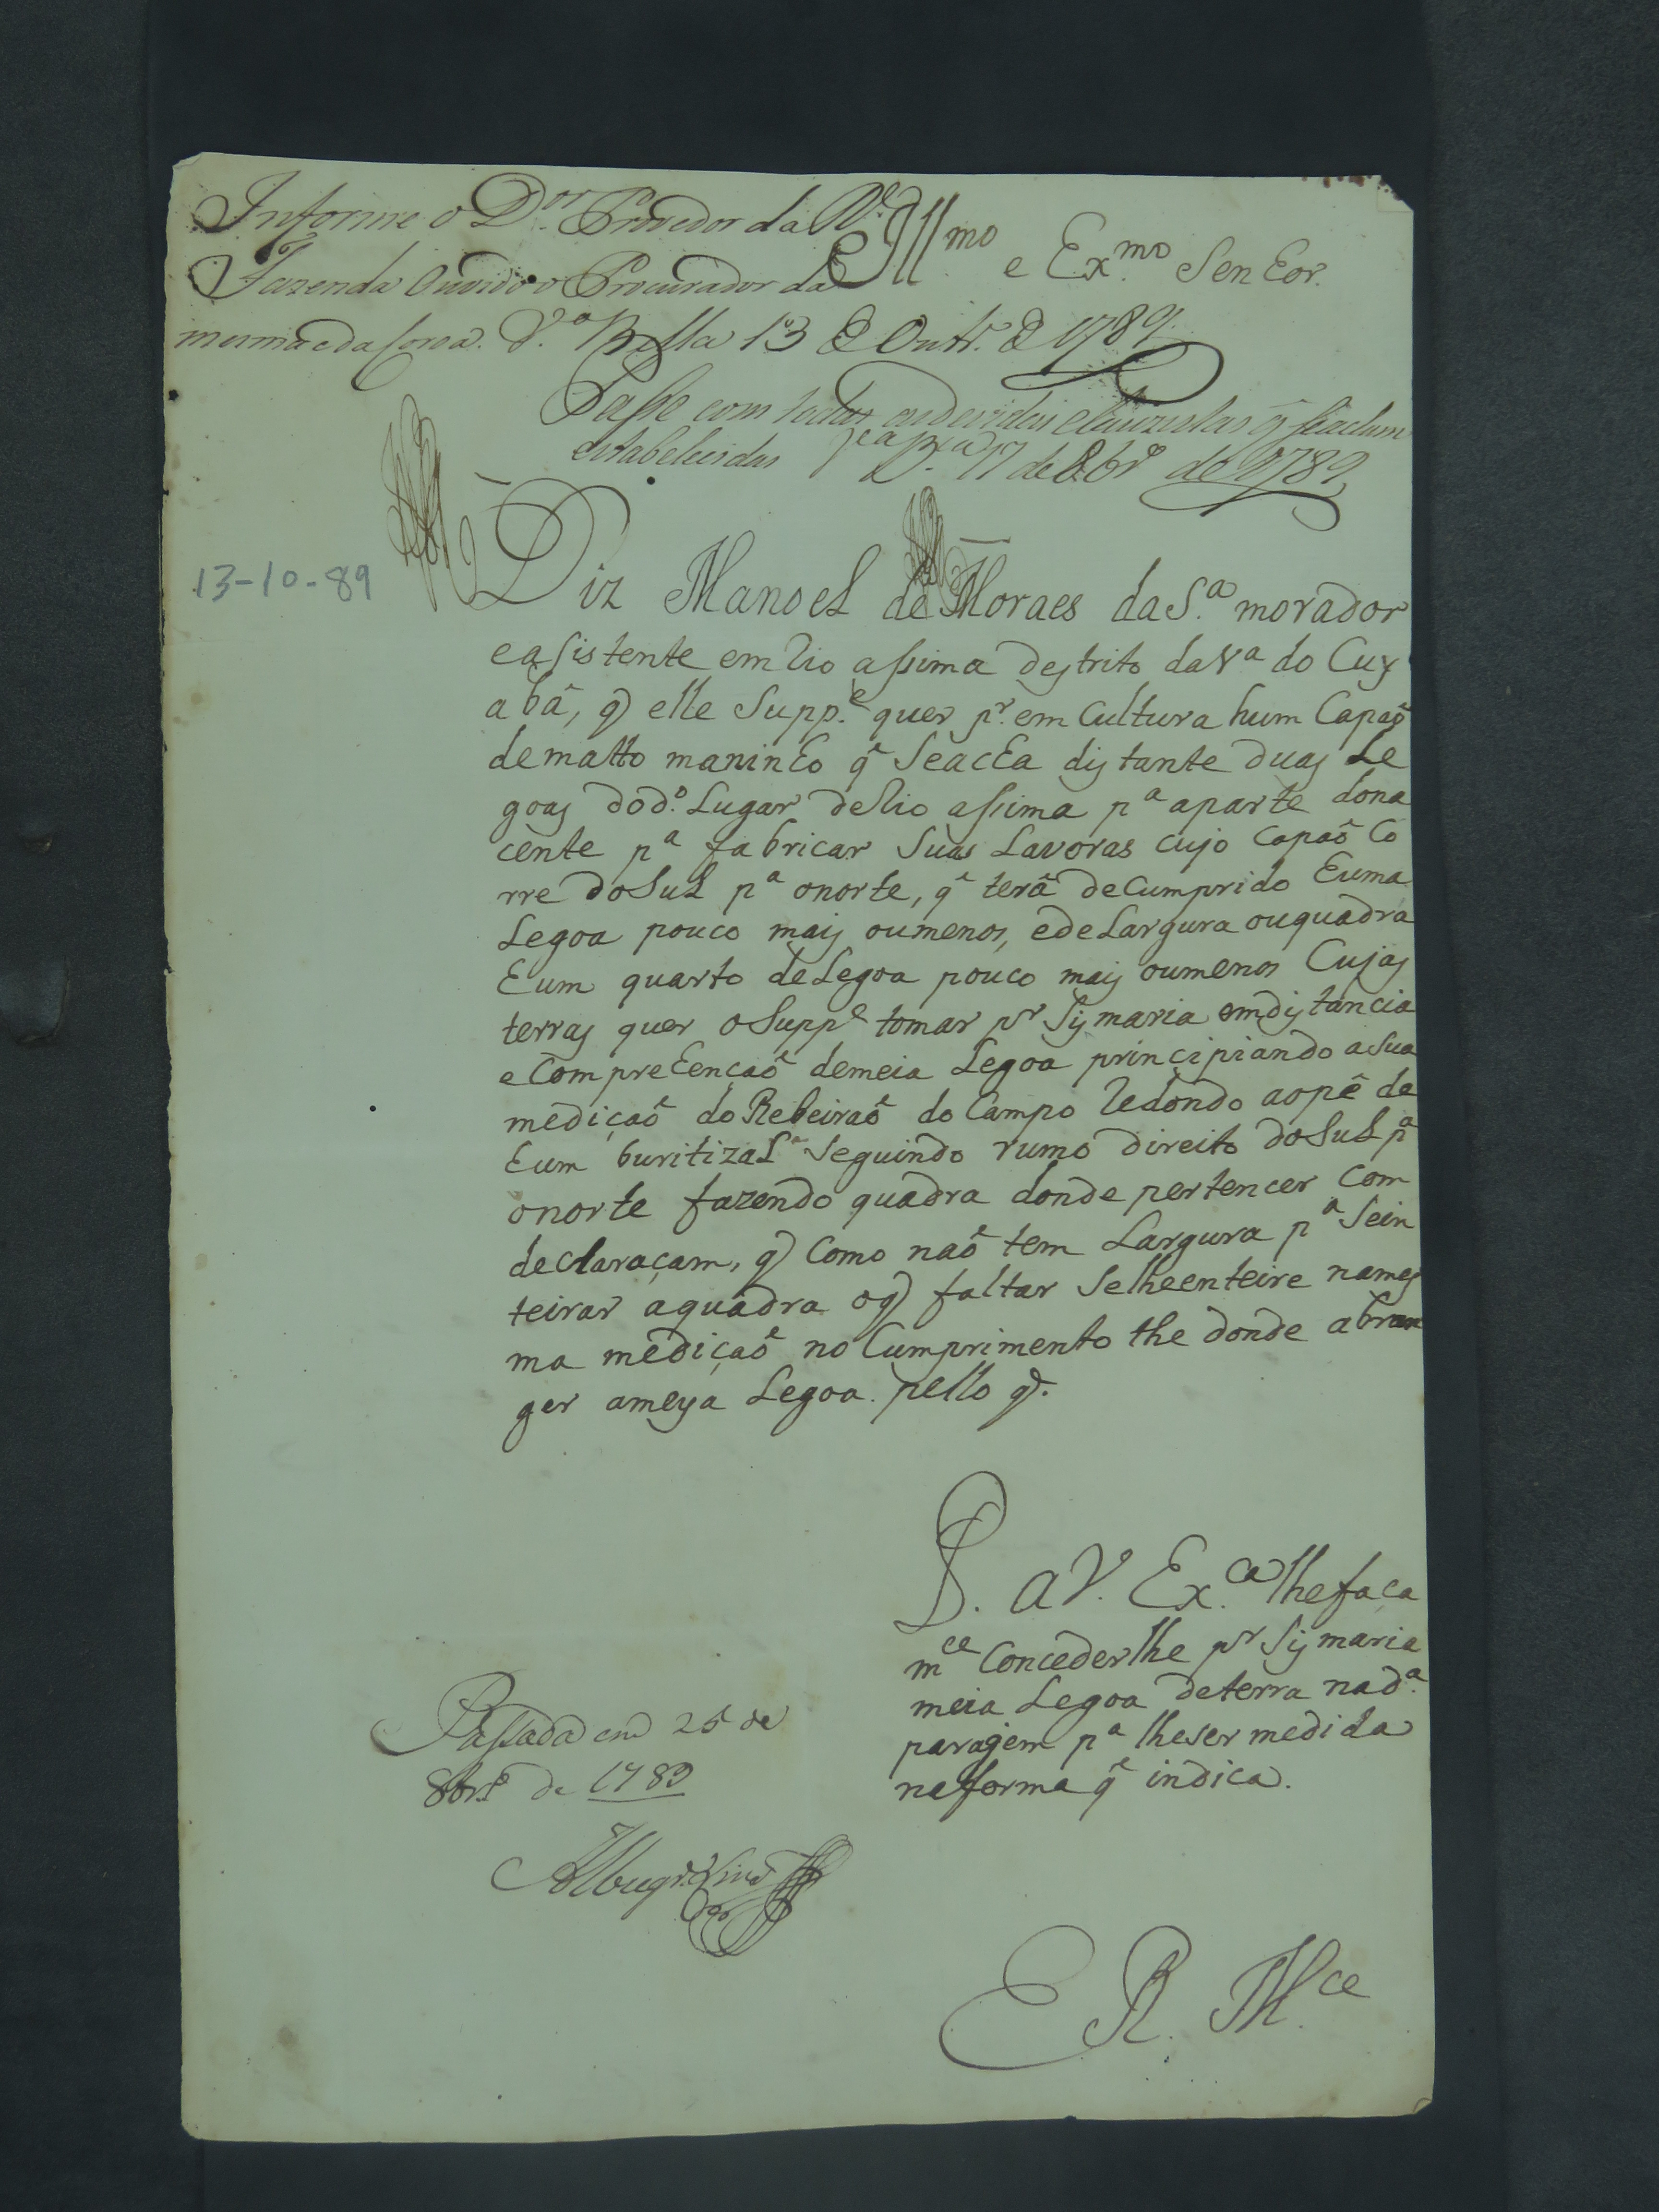 Informe o D.or Provedor da R.l
Fazenda Ouvido o Procurador da
mesma e da Coroa. V.a Bella 13 de Outr.o de 1789
Ill.mo e Ex.mo Senhor.
Passe com todas as devidas clauzulas q̃ se acham
estabelecidas V.a B.a 17 de 8br.o de 1789
13-10-89
Diz Manoel de Moraes da S.a morador
e asistente em Rio assima destrito da V.a do Cuy
abâ, q̃ elle Supp.e quer p.r em Cultura hum Capaõ
de matto maninho q̃ Se acha distante duas Le
goas do d.o Lugar de Rio assima p.a a parte do na
cente p.a fabricar Suas Lavoras cujo Capaõ Co
rre do Sul p.a o norte, q̃ terâ de Cumprido huma
Legoa pouco mais ou menos, e de Largura ou quadra
hum quarto de Legoa pouco mais ou menos Cujas
terras quer o Supp.e tomar p.r Sismaria em distancia
e Comprehençaõ de meia Legoa principiando a sua
mediçaõ do Rebeiraõ do Campo Redondo ao pê de
hum buritizal Seguindo rumo direito do Sul p.a
o norte fazendo quadra donde pertencer Com
declaraçam, q̃ Como naõ tem Largura p.a Se in
teirar a quadra o q̃ faltar Se lhe enteire na mes
ma mediçaõ no Cumprimento the donde abran
ger a meya Legoa. pello q̃.
P. a V. Ex.ca lhe faça
m.ce Concederlhe p.r Sismaria
meia Legoa de terra na d.a
paragem p.a lhe ser medida
na forma q̃ indica.
Passada em 25 de
8br.o de 1789
E R. M.ce